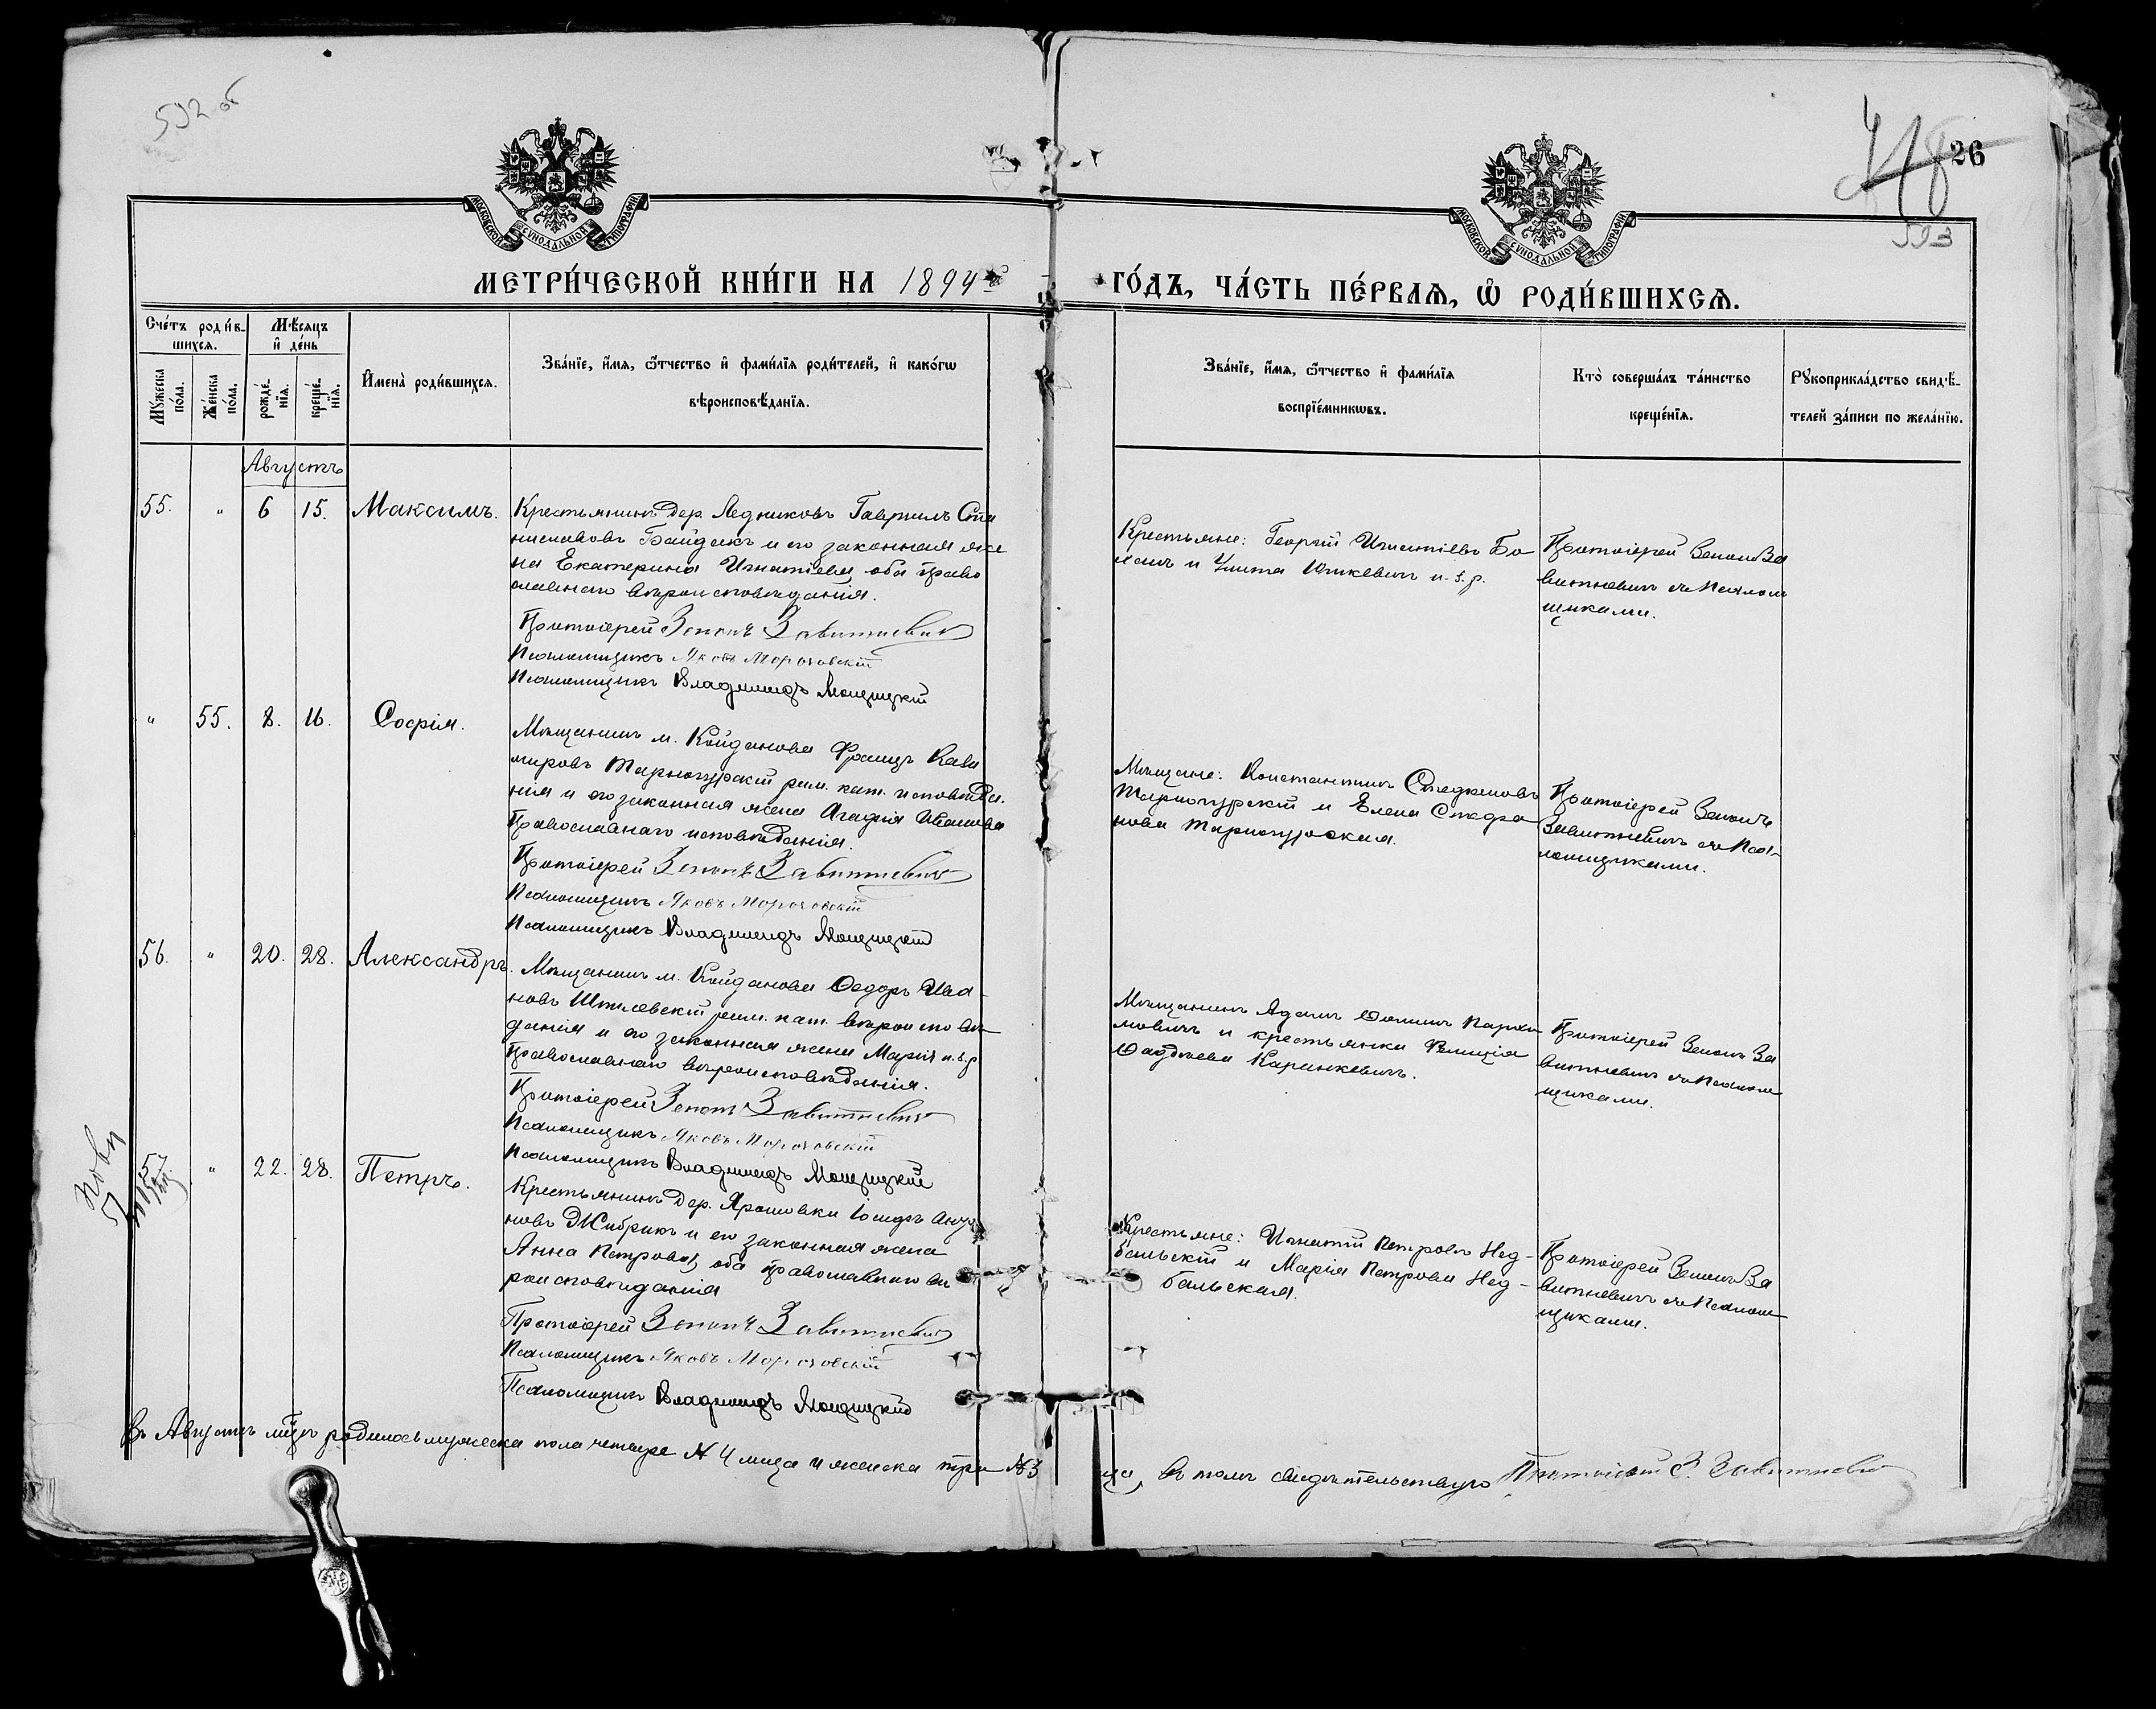 592 об
26
593
МОСКОВСКОЙ СУНОДАЛЬНОЙ ТИПОГРАФІИ
МОСКОВСКОЙ СУНОДАЛЬНОЙ ТИПОГРАФІИ
МЕТРИ́ЧЕСКОЙ КНИ́ГИ НА 1894й ГО́ДЪ, ЧА́СТЬ ПЕ́РВАѦ, Ѽ РОДИ́ВШИХСѦ.
Сче́тъ роди́в-
шихсѧ.
Мѣ́сяцъ
и҆ де́нь
Мꙋ́жеска
по́ла.
Же́нска
по́ла.
рожде́-
нїѧ.
креще́-
нїѧ.
И҆мена̀ роди́вшихсѧ.
Зва́нїе, и҆́мѧ, ѻ҆́тчество и҆ фами́лїѧ роди́телей, и҆ како́гѡ
вѣроисповѣ́данїѧ.
Зва́нїе, и҆́мѧ, ѻ҆́тчество и҆ фами́лїѧ
воспрїе́мникѡвъ.
Кто̀ соверша́лъ та́инство
креще́нїѧ.
Рꙋкоприкла́дство свидѣ́-
телей за́писи по жела́нїю.
Августъ
55. " 6 15. Максимъ.
Крестьянинъ дер. Ледниковъ Гавриилъ Ста
ниславовъ Байдакъ и его законная же
на Екатерина Игнатіева оба право
славнаго вѣроисповѣданія.
Протоіерей Зенонъ Завитневичъ
Псаломщикъ Яковъ Мороховскій
Псаломщикъ Владиміръ Мощицкій
Крестьяне: Георгій Игнатіевъ Бо
и Улита Ицкевичъ н. з. р.
Протоіерей Зенонъ За
витневичъ съ Псалом
щиками.
" 55. 8. 16. Софія.
Мѣщанинъ м. Койданова Францъ Кази
міровъ Тарногурскій рим. кат. исповѣда.
нія и его законная жена Агафія Иванова
Православнаго исповѣданія.
Протоіерей Зенонъ Завитневичъ
Псаломщикъ Яковъ Мороховскій
Псаломщикъ Владиміръ Мощицкій
Мѣщане: Константинъ Стефановъ
Тарногурскій и Елена Стефа
нова Тарногурская.
Протоіерей Зенонъ
Завитневичъ съ Пса-
ломщиками.
56. " 20. 28. Александръ.
Мѣщанинъ м. Койданова Ѳедоръ Ива-
новъ Шпилевскій рим. кат. вѣроисповѣ
данія и его законная жена Марія н. з. р
Православнаго вѣроисповѣданія.
Протоіерей Зенонъ Завитневичъ
Псаломщикъ Яковъ Мороховскій
Псаломщикъ Владиміръ Мощицкій
Мѣщанинъ Адамъ Ѳоминъ Пархи
мовичъ и крестьянка Фелиція
Ѳаддѣева Каранкевичъ.
Протоіерей Зенонъ За
витневичъ съ Псалом
щиками.
57. " 22. 28. Петръ.
Крестьянинъ дер. Ярошовки Іосифъ Анто
новъ Жибрикъ и его законная жена
Анна Петрова, оба православнаго вѣ
роисповѣданія
Протоіерей Зенонъ Завитневичъ
Псаломщикъ Яковъ Мороховскій
Псаломщикъ Владиміръ Мощицкій
Крестьяне: Игнатій Петровъ Нед-
бальскій и Марія Петрова Нед-
бальская.
Протоіерей Зенонъ За
витневичъ съ Псалом
щиками.
Въ Августѣ мцѣ родилось мужеска пола четыре № 4 лица и женска три № 3 лица, въ томъ свидѣтельствую Протоіерей З. Завитневичъ